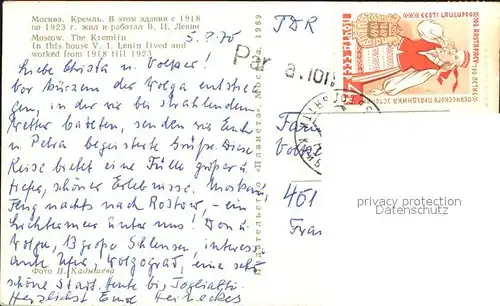 Москва. Кремль. В этом здании с 1918
по 1923 г. жил и работал В. И. Ленин
Moscow. The Kremlin
In this house V. I. Lenin lived and
worked from 1918 till 1923
5. 9. 70
Liebe Christa u. Volker!
Vor kurzem der Wolga entstie-
gen, in der wir bei strahlendem
Wetter badeten, senden wir Euch
u. Petra begeisterte Grüße. Diese
Reise bietet eine Fülle großer u.
tiefer, schöner Erlebnisse. Moskau,
Flug nachts nach Rostow, - ein
Lichtermeer unter uns! Don u.
Wolga, 13 große Schleusen, interess-
ante Ufer, Wolgograd, eine sehr
schöne Stadt. Heute bis Togliatti.
Herzlichst Eure
Фото В.
Издательство «Планета». Москва. 1969
TDR
Par a
Fam
Vol
401
privacy protection
Datenschutz